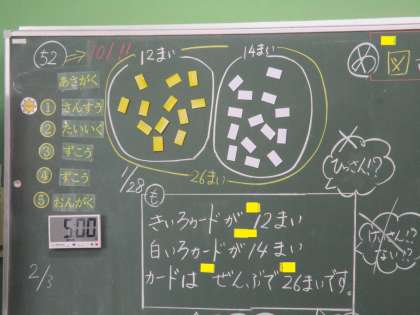 52
10/11
12まい
14まい
26まい
あさがく
① さんすう
② たいいく
③ ずこう
④ ずこう
⑤ おんがく
5:00
2/3
1/28
も
きいろカードが 12まい
白いろカードが 14まい
カードは ぜんぶで 26まいです。
め
ひっさん!?